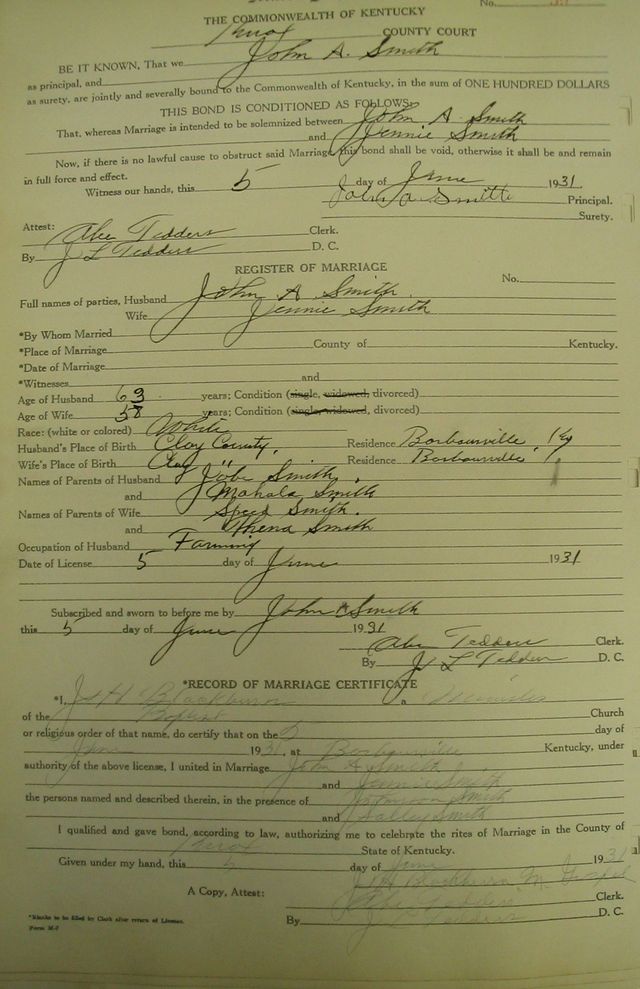 No.
THE COMMONWEALTH OF KENTUCKY
Knox COUNTY COURT
BE IT KNOWN, That we John A. Smith
as principal, and
as surety, are jointly and severally bound to the Commonwealth of Kentucky, in the sum of ONE HUNDRED DOLLARS
THIS BOND IS CONDITIONED AS FOLLOWS:
That, whereas Marriage is intended to be solemnized between John A Smith
and Jennie Smith
Now, if there is no lawful cause to obstruct said Marriage, this bond shall be void, otherwise it shall be and remain
in full force and effect.
Witness our hands, this 5 day of June 1931.
John A Smith Principal.
Surety.
Attest: Abe Tedders Clerk.
By J L Tedders D. C.
REGISTER OF MARRIAGE
No.
Full names of parties, Husband John A Smith.
Wife Jennie Smith
*By Whom Married
*Place of Marriage County of Kentucky.
*Date of Marriage
*Witnesses and
Age of Husband 63 years; Condition (single, widowed, divorced)
Age of Wife 58 years; Condition (single, widowed, divorced)
Race: (white or colored) White
Husband's Place of Birth Clay County, Residence Barbourville, Ky
Wife's Place of Birth Clay " Residence Barbourville
Names of Parents of Husband Jobe Smith,
and Mahala Smith
Names of Parents of Wife Speed Smith.
and Thena Smith
Occupation of Husband Farming
Date of License 5 day of June 1931
Subscribed and sworn to before me by John A Smith
this 5 day of June 1931
Abe Tedders Clerk.
By J L Tedders D. C.
*RECORD OF MARRIAGE CERTIFICATE
*I, J H Blackburn a Minister
of the Baptist Church
or religious order of that name, do certify that on the 5 day of
June 1931, at Barbourville Kentucky, under
authority of the above license, I united in Marriage John A Smith
and Jennie Smith
the persons named and described therein, in the presence of Smith
and Salley Smith
I qualified and gave bond, according to law, authorizing me to celebrate the rites of Marriage in the County of
Knox State of Kentucky.
Given under my hand, this 5 day of June 1931
J H Blackburn M. Gospel
A Copy, Attest: Abe Tedders Clerk.
By J L Tedders D. C.
*Blanks to be filled by Clerk after return of License.
Form M-F